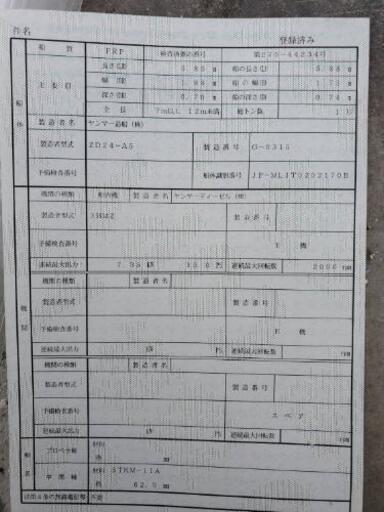 件名 登録済み
船質 FRP 検査済票の番号 第270-44234号
主要目 長さ(L) 5.88 m 船の長さ(L) 5.88 m
幅(B) 1.98 m 船の幅(B) 1.73 m
深さ(D) 0.78 m 船の深さ(D) 0.74 m
全長 7m以上 12m未満 総トン数
船体
製造者名 ヤンマー造船（株）
製造者型式 ZD24-A5 製造番号 G-0316
予備検査番号 船体識別番号
機関の種類 船内機 製造者名 ヤンマーディーゼル（株）
製造者型式 製造番号
予備検査番号 主機
連続最大出力 7.35 kW 10.0 PS 連続最大回転数 rpm
機関の種類 製造者名
製造者型式 製造番号
機関
予備検査番号 主機
連続最大出力 連続最大回転数 rpm
機関の種類 製造者名
製造者型式 製造番号
予備検査番号 スペア
連続最大出力 連続最大回転数 rpm
プロペラ軸 材料
中間軸 材料 STKM-11A
径 62.0 mm